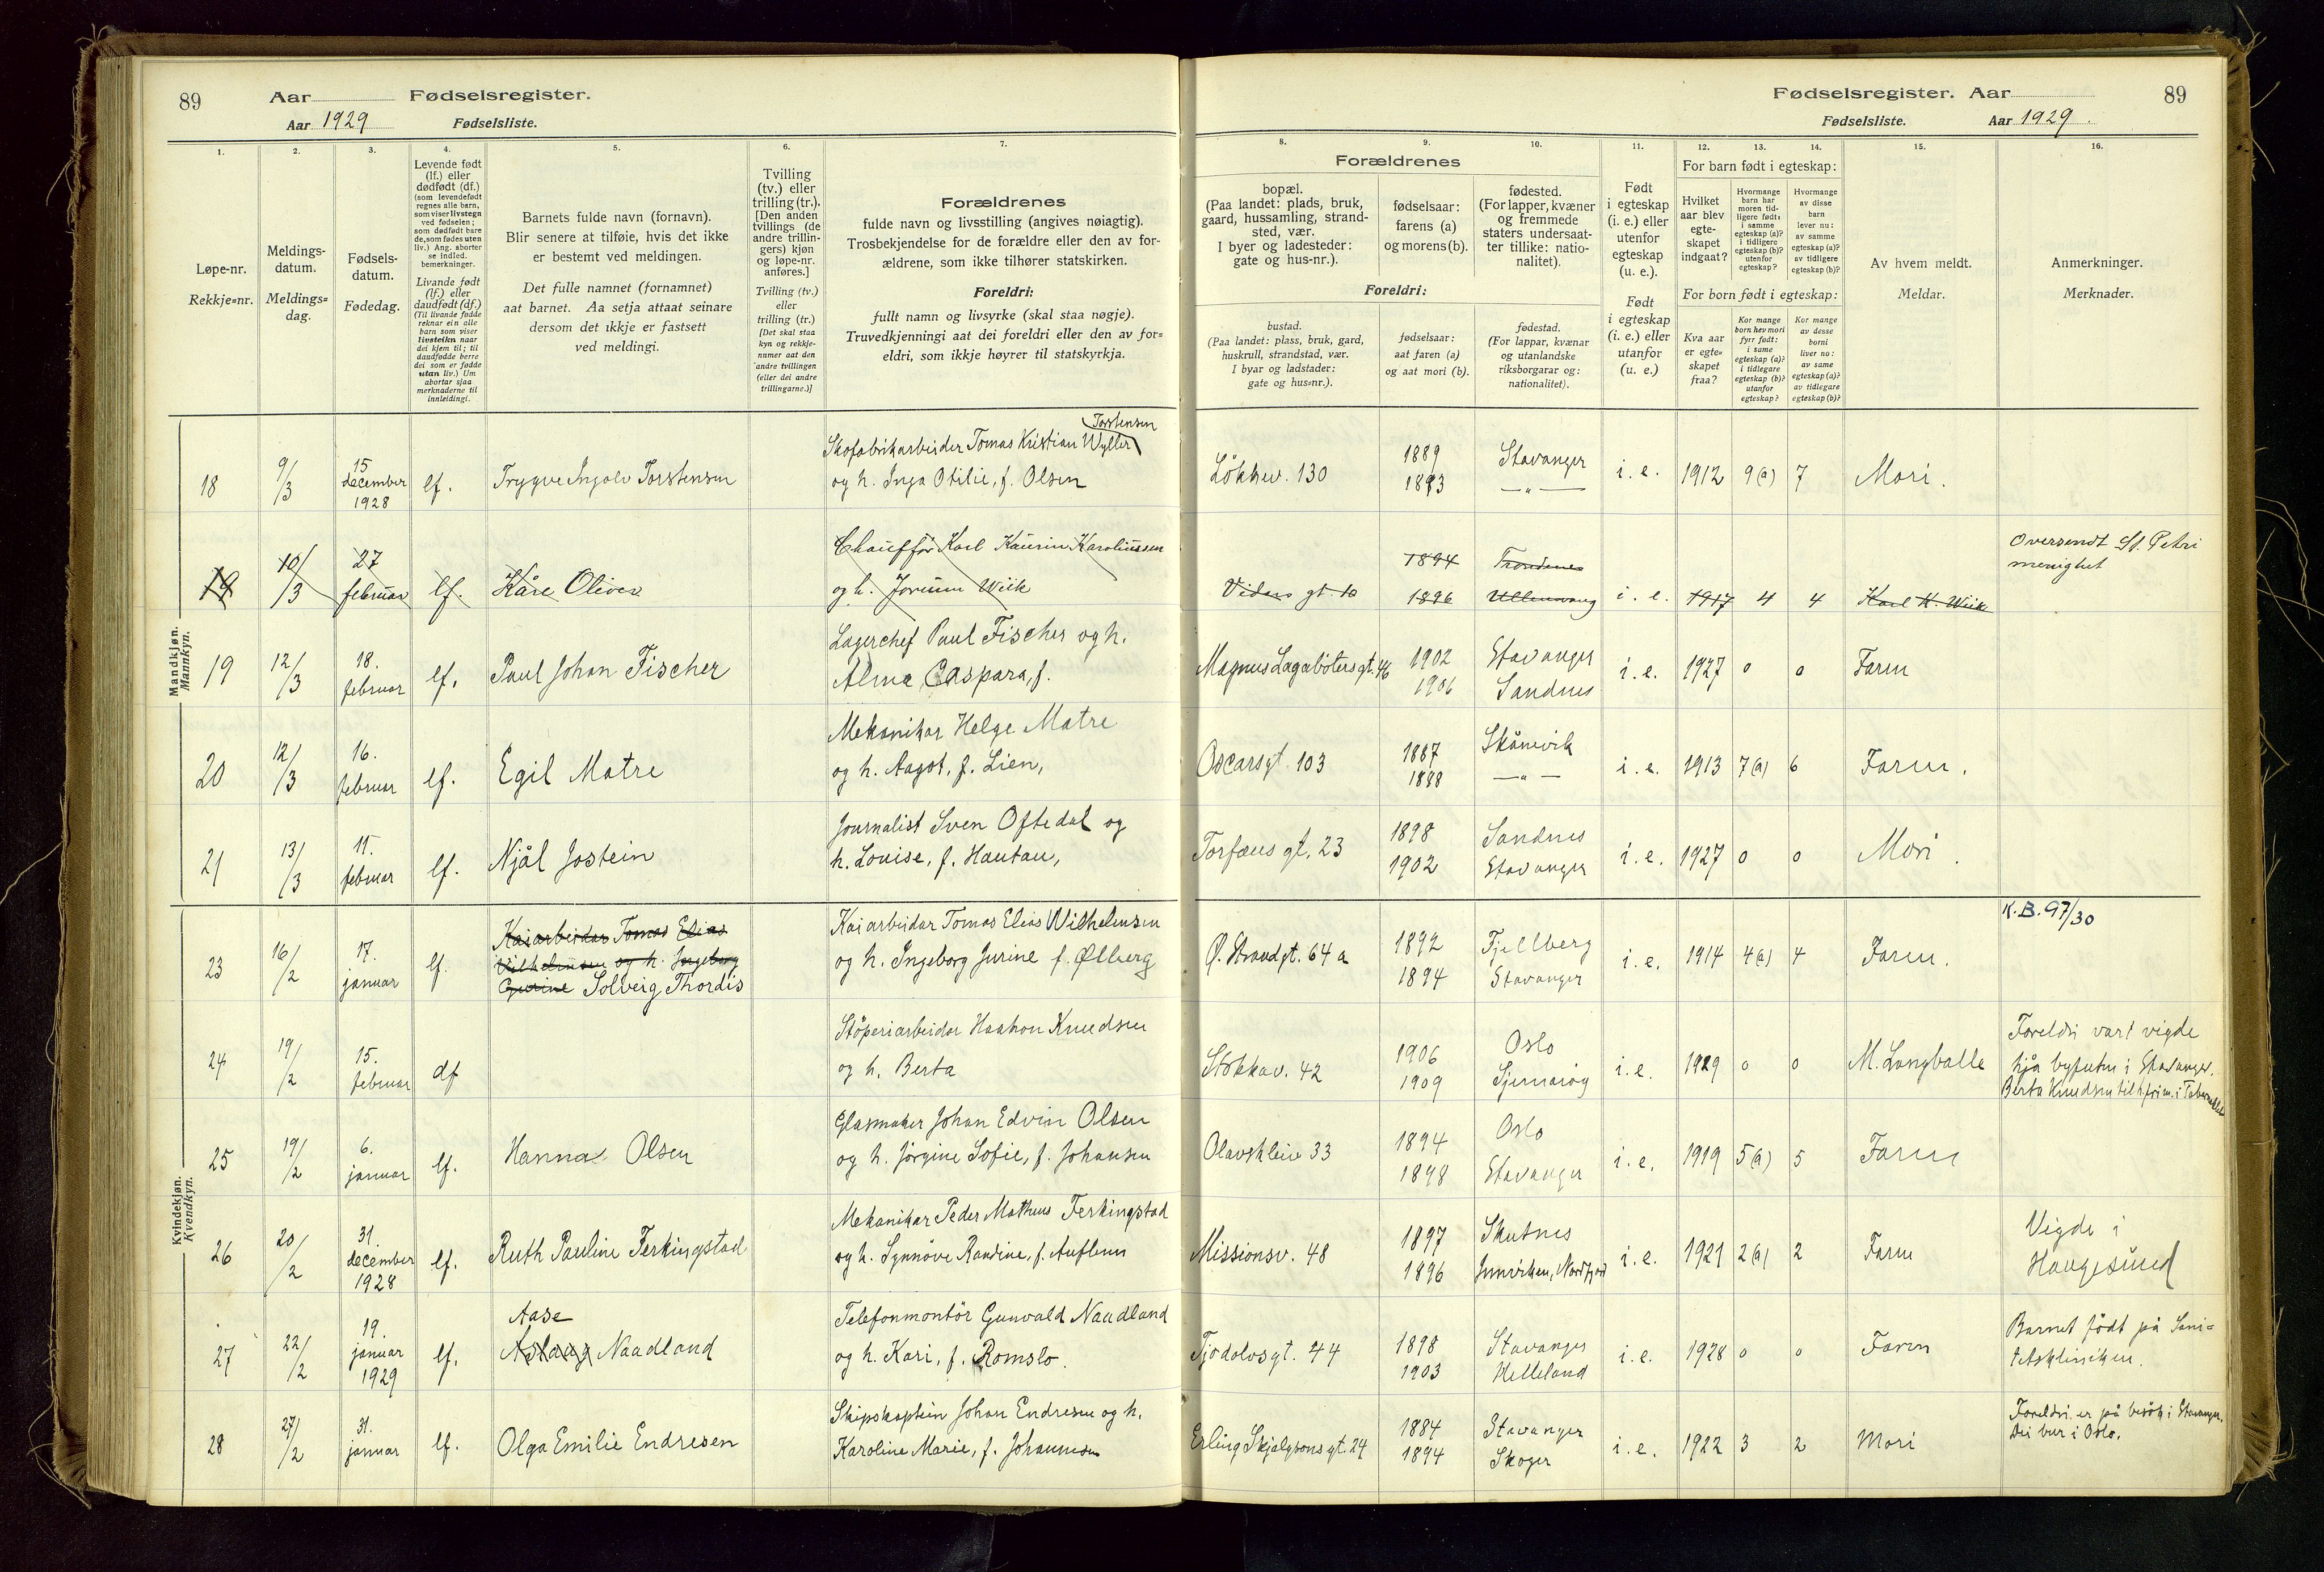 89
Aar
Fødselsregister.
Aar 1929
Fødselsliste.
1.
Løpe-nr.
Rekkje=nr.
2.
Meldings-
datum.
Meldings=
dag.
3.
Fødsels-
datum.
Fødedag.
4.
Levende født
(lf.) eller
dødfødt (df.)
(som levendefødt
regnes alle barn,
som viser livstegn
ved fødselen;
som dødfødt bare
de, som fødes uten
liv.) Ang. aborter
se indled.
bemerkninger.
Livande født
(lf.) eller
daudfødt (df.)
(Til livande fødde
reknar ein alle
barn som viser
livsteikn naar
dei kjem til; til
daudfødde berre
dei som er fødde
utan liv.) Um
abortar sjaa
merknaderne til
innleidingi.
5.
Barnets fulde navn (fornavn).
Blir senere at tilføie, hvis det ikke
er bestemt ved meldingen.
Det fulle namnet (fornamnet)
aat barnet. Aa setja attaat seinare
dersom det ikkje er fastsett
ved meldingi.
6.
Tvilling
(tv.) eller
trilling (tr.).
[Den anden
tvillings (de
andre trillin-
gers) kjøn
og løpe-nr.
anføres.]
Tvilling (tv.)
eller
trilling (tr.)
[Det skal staa
kyn og rekkje-
numer aat den
andre tvillingen
(eller dei andre
trillingarne.)]
7.
Forældrenes
fulde navn og livsstilling (angives nøiagtig).
Trosbekjendelse for de forældre eller den av for-
ældrene, som ikke tilhører statskirken.
Foreldri:
fullt namn og livsyrke (skal staa nøgje).
Truvedkjenningi aat dei foreldri eller den av for=
eldri, som ikkje høyrer til statskyrkja.
Mandkjøn.
Mannkyn.
18
9/3
15
december
1928
lf.
Trygve Ingolv Torstensen
Torstensen
Skofabrikarbeider Tomas Kristian Wyller
og h. Inga Otilie, f. Olsen
19
10/3
27
februar
lf.
Kåre Oliver
Chauffør Karl Kaurin Karoliussen
og h. Jorunn Wiik
19
12/3
18.
februar
lf.
Paul Johan Fischer
Lagerchef Paul Fischer og h.
Alma Caspara, f.
20
12/3
16.
februar
lf.
Egil Matre
Mekanikar Helge Matre
og h. Aagot, f. Lien,
21
13/3
11.
februar
lf.
Njål Jostein
Journalist Sven Oftedal og
h. Louise, f. Hantau,
Kvindekjøn.
Kvendkyn.
23
16/2
17.
januar
lf.
Kaiarbeidar Tomas Elias
Vilhelmsen og h. Ingeborg
Gurine Solveig Thordis
Kaiarbeidar Tomas Elias Wilhelmsen
og h. Ingeborg Jurine f. Ølberg
24
19/2
15.
februar
df
Støperiarbeidar Haakon Knudsen
og h. Berta
25
19/2
6.
januar
lf.
Hanna Olsen
Glasmaker Johan Edvin Olsen
og h. Jørgine Sofie, f. Johansen
26
20/2
31.
december
1928
lf.
Ruth Pauline Ferkingstad
Mekanikar Peder Matheus Ferkingstad
og h. Synnøve Randine, f. Auflem
27
22/2
19.
januar
1929
lf.
Aase
Aslaug Naadland
Telefonmontør Gunvald Naadland
og h. Kari, f. Romslo.
28
27/2
31.
januar
lf.
Olga Emilie Endresen
Skipskaptein Johan Endresen og h.
Karoline Marie, f. Johannesen
Fødselsregister. Aar
89
Fødselsliste.
Aar 1929.
8.
9.
10.
Forældrenes
bopæl.
(Paa landet: plads, bruk,
gaard, hussamling, strand-
sted, vær.
I byer og ladesteder:
gate og hus-nr.).
fødselsaar:
farens (a)
og morens (b).
fødested.
(For lapper, kvæner
og fremmede
staters undersaat-
ter tillike: natio-
nalitet).
Foreldri:
bustad.
(Paa landet: plass, bruk, gard,
huskrull, strandstad, vær.
I byar og ladstader:
gate og hus=nr.).
fødselsaar:
aat faren (a)
og aat mori (b).
fødestad.
(For lappar, kvænar
og utanlandske
riksborgarar og:
nationalitet).
11.
Født
i egteskap
(i. e.) eller
utenfor
egteskap
(u. e.).
Født
i egteskap
(i. e.) eller
utanfor
(u. e.)
12.
13.
14.
For barn født i egteskap:
Hvilket
aar blev
egte-
skapet
indgaat?
Hvormange
barn har
moren tid-
ligere født:
i samme
egteskap (a)?
i tidligere
egteskap (b)?
utenfor
egteskap?
Hvormange
av disse
barn
lever nu:
av samme
egteskap (a)?
av tidligere
egteskap (b)?
For born født i egteskap:
Kva aar
er egte=
skapet
fraa?
Kor mange
born hev mori
fyrr født:
i same
egteskap (a)?
i tidlegare
egteskap (b)?
utanfor
egteskap?
Kor mange
av desse
borni
liver no:
av same
egteskap (a)?
av tidlegare
egteskap (b)?
15.
Av hvem meldt.
Meldar.
16.
Anmerkninger.
Merknader.
Løkkev. 130
1889
1893
Stavanger
— „ —
i. e.
1912
9 (a)
7
Mori.
Vidars gt. 10
1894
1896
Trondenes
Ullensvang
i. e.
1917
4
4
Karl K. Wiik
Oversendt St. Petri
menighet
Magnus Lagabøters gt. 46
1902
1906
Stavanger
Sandnes
i. e.
1927
0
0
Faren
Oscarsgt. 103
1887
1888
Skånevik
— „ —
i. e.
1913
7 (a)
6
Faren.
Torfæus gt. 23
1898
1902
Sandnes
Stavanger
i. e.
1927
0
0
Mori.
Ø. Strandgt. 64 a
1892
1894
Fjellberg
Stavanger
i. e.
1914
4 (a)
4
Faren.
K.B. 97/30
Stokkav. 42
1906
1909
Oslo
Sjernarøy
i. e.
1929
0
0
M. Langballe
Foreldri vart vigde
hjå byfuten i Stavanger.
Berta Knudsen til h. frim. i Tabernaklet
Olavskleiv 33
1894
1898
Oslo
Stavanger
i. e.
1919
5 (a)
5
Faren
Missionsv. 48
1897
1896
Skutnes
Innviken, Nordfjord
i. e.
1921
2 (a)
2
Faren
Vigde i
Haugesund
Tjodolvsgt. 44
1898
1903
Stavanger
Helleland
i. e.
1928
0
0
Faren
Barnet født på Sani=
tetskliniken.
Erling Skjalgsons gt. 24
1884
1894
Stavanger
Skoger
i. e.
1922
3
2
Mori
Foreldri er på besøk i Stavanger.
Dei bur i Oslo.